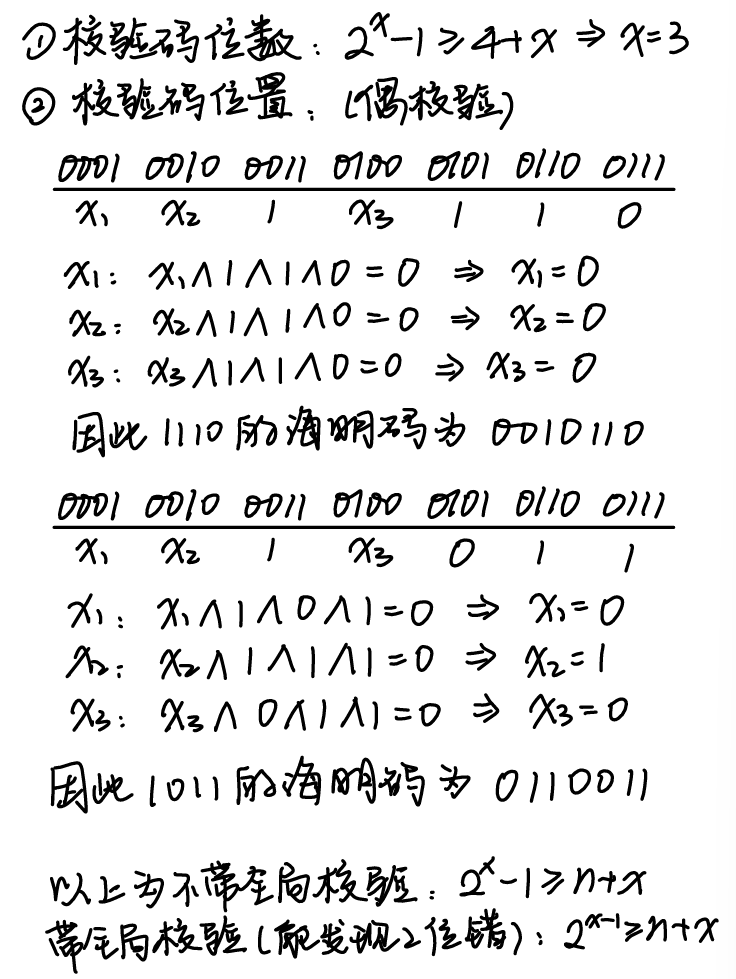 ① 校验码位数：2^x-1≥4+x ⇒ x=3
② 校验码位置：(偶校验)
0001 0010 0011 0100 0101 0110 0111
x₁ x₂ 1 x₃ 1 1 0
x₁：x₁∧1∧1∧0=0 ⇒ x₁=0
x₂：x₂∧1∧1∧0=0 ⇒ x₂=0
x₃：x₃∧1∧1∧0=0 ⇒ x₃=0
因此1110的海明码为0010110
0001 0010 0011 0100 0101 0110 0111
x₁ x₂ 1 x₃ 0 1 1
x₁：x₁∧1∧0∧1=0 ⇒ x₁=0
x₂：x₂∧1∧1∧1=0 ⇒ x₂=1
x₃：x₃∧0∧1∧1=0 ⇒ x₃=0
因此1011的海明码为0110011
以上为不带全局校验：2^x-1≥n+x
带全局校验(能发现2位错)：2^(x-1)≥n+x